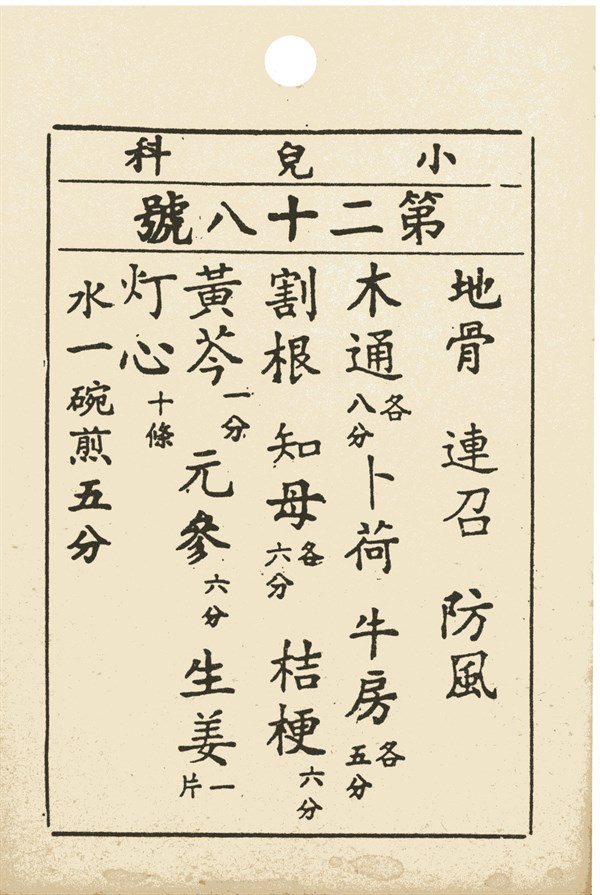 小兒科
第二十八號
地骨 連召 防風
木通各八分 卜荷 牛房各五分
割根 知母各六分 桔梗六分
黃芩一分 元參六分 生姜一片
灯心十條
水一碗煎五分